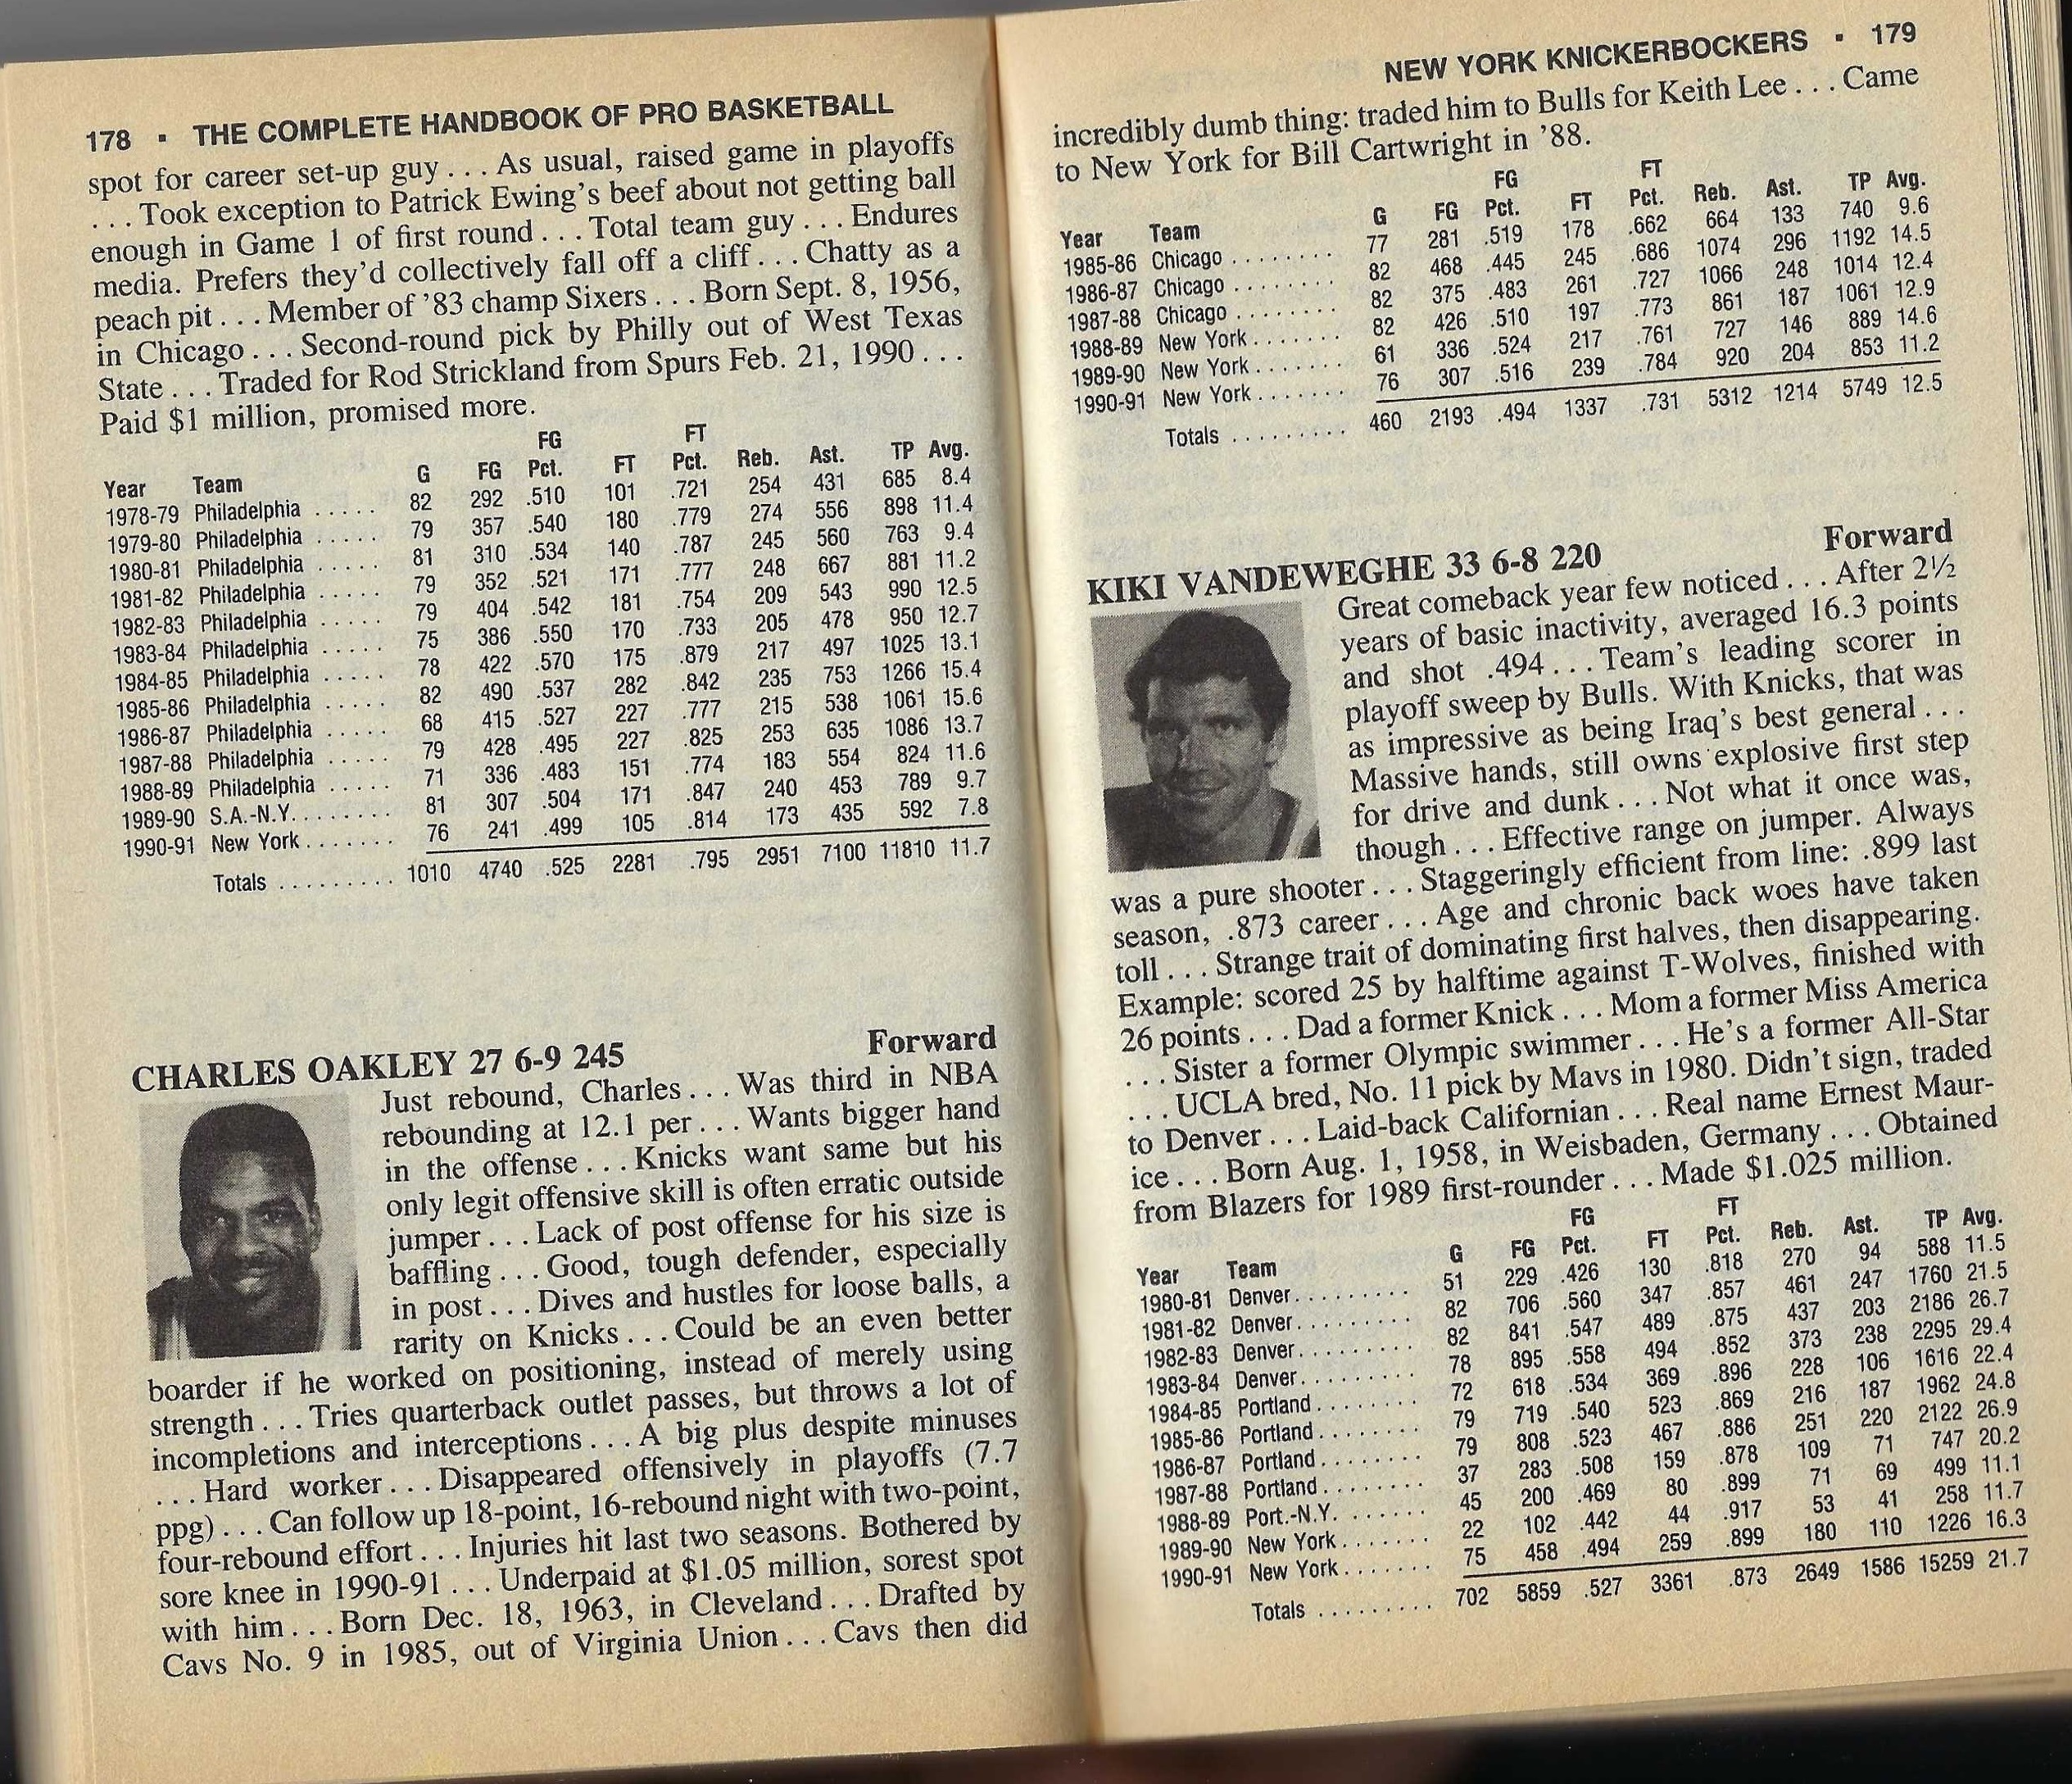 178 ▪ THE COMPLETE HANDBOOK OF PRO BASKETBALL
spot for career set-up guy . . . As usual, raised game in playoffs
. . . Took exception to Patrick Ewing's beef about not getting ball
enough in Game 1 of first round . . . Total team guy . . . Endures
media. Prefers they'd collectively fall off a cliff . . . Chatty as a
peach pit . . . Member of '83 champ Sixers . . . Born Sept. 8, 1956,
in Chicago . . . Second-round pick by Philly out of West Texas
State . . . Traded for Rod Strickland from Spurs Feb. 21, 1990 . . .
Paid $1 million, promised more.
FG FT
Year Team G FG Pct. FT Pct. Reb. Ast. TP Avg.
1978-79 Philadelphia . . . . . 82 292 .510 101 .721 254 431 685 8.4
1979-80 Philadelphia . . . . . 79 357 .540 180 .779 274 556 898 11.4
1980-81 Philadelphia . . . . . 81 310 .534 140 .787 245 560 763 9.4
1981-82 Philadelphia . . . . . 79 352 .521 171 .777 248 667 881 11.2
1982-83 Philadelphia . . . . . 79 404 .542 181 .754 209 543 990 12.5
1983-84 Philadelphia . . . . . 75 386 .550 170 .733 205 478 950 12.7
1984-85 Philadelphia . . . . . 78 422 .570 175 .879 217 497 1025 13.1
1985-86 Philadelphia . . . . . 82 490 .537 282 .842 235 753 1266 15.4
1986-87 Philadelphia . . . . . 68 415 .527 227 .777 215 538 1061 15.6
1987-88 Philadelphia . . . . . 79 428 .495 227 .825 253 635 1086 13.7
1988-89 Philadelphia . . . . . 71 336 .483 151 .774 183 554 824 11.6
1989-90 S.A.-N.Y. . . . . . . . 81 307 .504 171 .847 240 453 789 9.7
1990-91 New York . . . . . . . 76 241 .499 105 .814 173 435 592 7.8
Totals . . . . . . . . . 1010 4740 .525 2281 .795 2951 7100 11810 11.7
CHARLES OAKLEY 27 6-9 245 Forward
Just rebound, Charles . . . Was third in NBA
rebounding at 12.1 per . . . Wants bigger hand
in the offense . . . Knicks want same but his
only legit offensive skill is often erratic outside
jumper . . . Lack of post offense for his size is
baffling . . . Good, tough defender, especially
in post . . . Dives and hustles for loose balls, a
rarity on Knicks . . . Could be an even better
boarder if he worked on positioning, instead of merely using
strength . . . Tries quarterback outlet passes, but throws a lot of
incompletions and interceptions . . . A big plus despite minuses
. . . Hard worker . . . Disappeared offensively in playoffs (7.7
ppg) . . . Can follow up 18-point, 16-rebound night with two-point,
four-rebound effort . . . Injuries hit last two seasons. Bothered by
sore knee in 1990-91 . . . Underpaid at $1.05 million, sorest spot
with him . . . Born Dec. 18, 1963, in Cleveland . . . Drafted by
Cavs No. 9 in 1985, out of Virginia Union . . . Cavs then did
NEW YORK KNICKERBOCKERS ▪ 179
incredibly dumb thing: traded him to Bulls for Keith Lee . . . Came
to New York for Bill Cartwright in '88.
FG FT
Year Team G FG Pct. FT Pct. Reb. Ast. TP Avg.
1985-86 Chicago . . . . . . . . 77 281 .519 178 .662 664 133 740 9.6
1986-87 Chicago . . . . . . . . 82 468 .445 245 .686 1074 296 1192 14.5
1987-88 Chicago . . . . . . . . 82 375 .483 261 .727 1066 248 1014 12.4
1988-89 New York . . . . . . . 82 426 .510 197 .773 861 187 1061 12.9
1989-90 New York . . . . . . . 61 336 .524 217 .761 727 146 889 14.6
1990-91 New York . . . . . . . 76 307 .516 239 .784 920 204 853 11.2
Totals . . . . . . . . . 460 2193 .494 1337 .731 5312 1214 5749 12.5
KIKI VANDEWEGHE 33 6-8 220 Forward
Great comeback year few noticed . . . After 2½
years of basic inactivity, averaged 16.3 points
and shot .494 . . . Team's leading scorer in
playoff sweep by Bulls. With Knicks, that was
as impressive as being Iraq's best general . . .
Massive hands, still owns explosive first step
for drive and dunk . . . Not what it once was,
though . . . Effective range on jumper. Always
was a pure shooter . . . Staggeringly efficient from line: .899 last
season, .873 career . . . Age and chronic back woes have taken
toll . . . Strange trait of dominating first halves, then disappearing.
Example: scored 25 by halftime against T-Wolves, finished with
26 points . . . Dad a former Knick . . . Mom a former Miss America
. . . Sister a former Olympic swimmer . . . He's a former All-Star
. . . UCLA bred, No. 11 pick by Mavs in 1980. Didn't sign, traded
to Denver . . . Laid-back Californian . . . Real name Ernest Maur-
ice . . . Born Aug. 1, 1958, in Weisbaden, Germany . . . Obtained
from Blazers for 1989 first-rounder . . . Made $1.025 million.
FG FT
Year Team G FG Pct. FT Pct. Reb. Ast. TP Avg.
1980-81 Denver . . . . . . . . . 51 229 .426 130 .818 270 94 588 11.5
1981-82 Denver . . . . . . . . . 82 706 .560 347 .857 461 247 1760 21.5
1982-83 Denver . . . . . . . . . 82 841 .547 489 .875 437 203 2186 26.7
1983-84 Denver . . . . . . . . . 78 895 .558 494 .852 373 238 2295 29.4
1984-85 Portland . . . . . . . . 72 618 .534 369 .896 228 106 1616 22.4
1985-86 Portland . . . . . . . . 79 719 .540 523 .869 216 187 1962 24.8
1986-87 Portland . . . . . . . . 79 808 .523 467 .886 251 220 2122 26.9
1987-88 Portland . . . . . . . . 37 283 .508 159 .878 109 71 747 20.2
1988-89 Port.-N.Y. . . . . . . . 45 200 .469 80 .899 71 69 499 11.1
1989-90 New York . . . . . . . 22 102 .442 44 .917 53 41 258 11.7
1990-91 New York . . . . . . . 75 458 .494 259 .899 180 110 1226 16.3
Totals . . . . . . . . . 702 5859 .527 3361 .873 2649 1586 15259 21.7